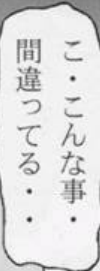 こ・こんな事・
間違ってる・・